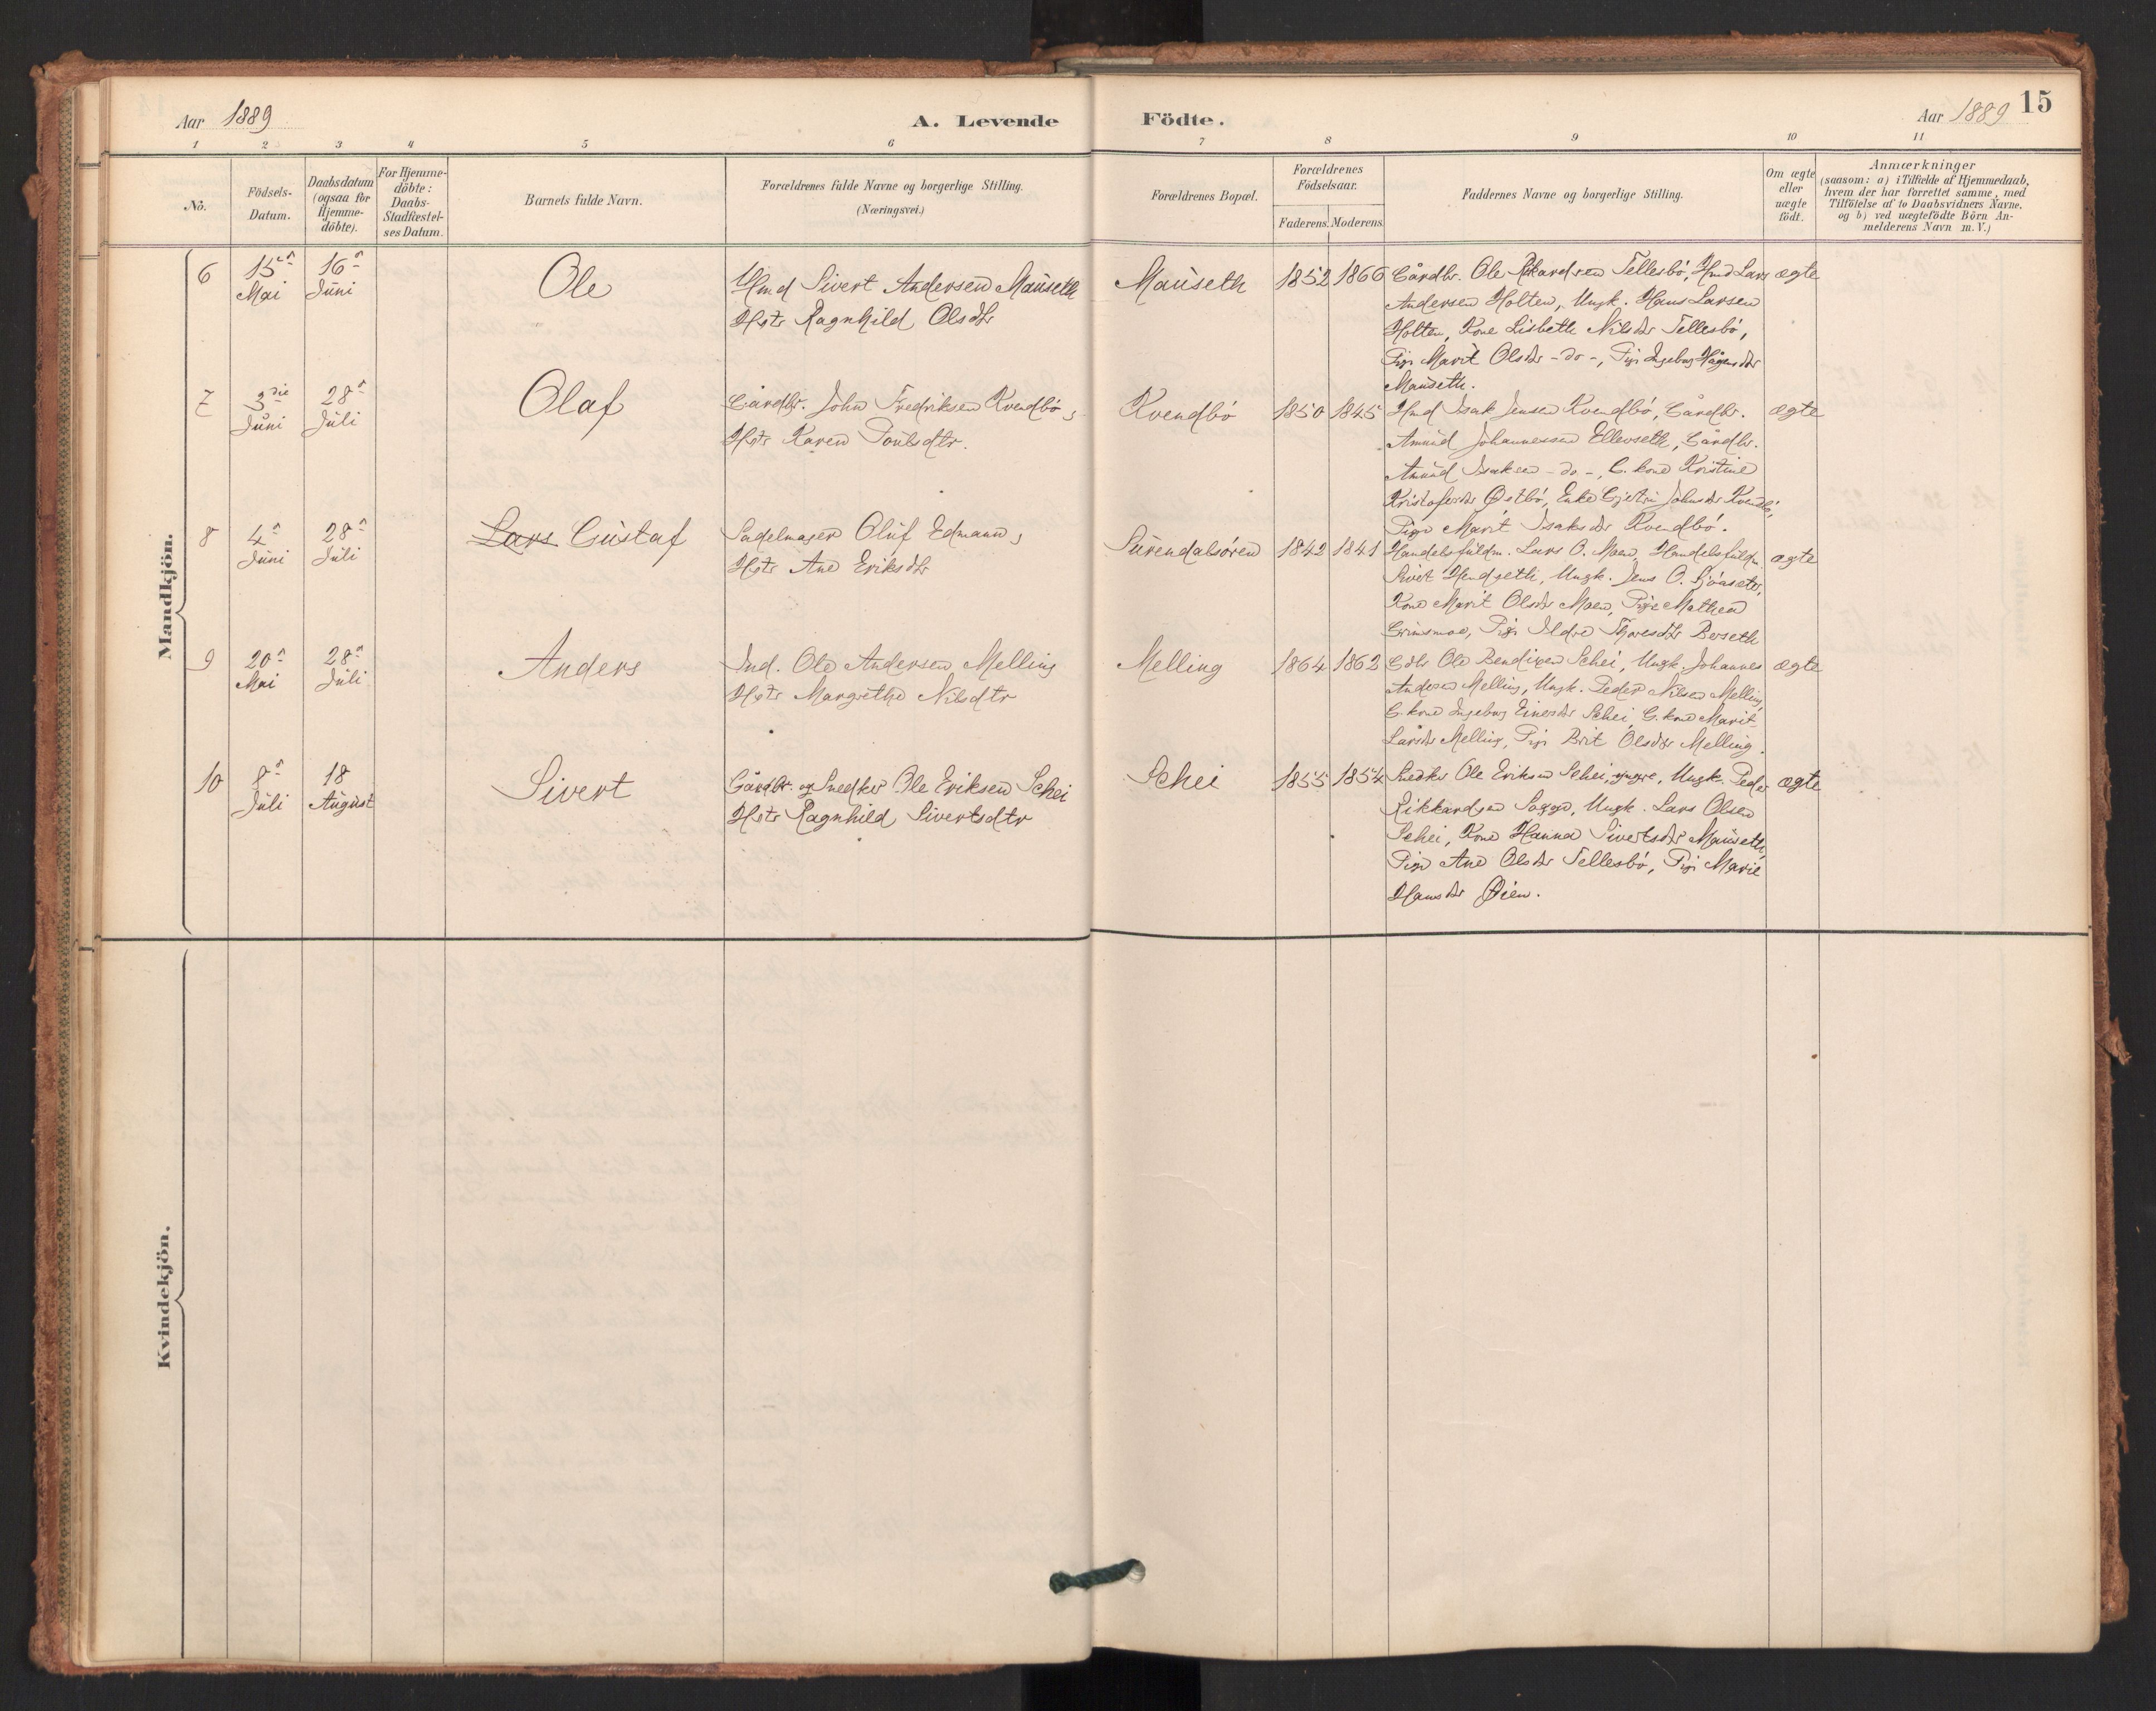 Aar 1889
A. Levende
Födte.
Aar 1889
15
1 2 3 4 5 6 7 8 9 10 11
No.
Födsels-
Datum.
Daabsdatum
(ogsaa for
Hjemme-
döbte).
For Hjemme-
döbte:
Daabs-
Stadfæstel-
ses Datum.
Barnets fulde Navn.
Forældrenes fulde Navne og borgerlige Stilling.
(Næringsvei.)
Forældrenes Bopæl.
Forældrenes
Födselsaar.
Faderens. Moderens.
Faddernes Navne og borgerlige Stilling.
Om ægte
eller
uægte
födt.
Anmærkninger
(saasom: a) i Tilfælde af Hjemmedaab,
hvem der har forrettet samme, med
Tilföielse af to Daabsvidners Navne,
og b) ved uægtefödte Börn An-
melderens Navn m. V.)
Mandkjön.
6
15de
Mai
16de
Juni
Ole
Hmd Sivert Andersen Mauseth
Hstr Ragnhild Olsdtr
Mauseth
1852 1866
Gårdbr. Ole Rikardsen Tellesbö, Hmd Lars
Andersen Holten, Ungk. Hans Larsen
Holten, Kone Lisbeth Nilsdtr Tellesbö,
Pige Marit Olsdtr -do-, Pige Ingeborg Hågensdtr
Mauseth.
ægte
7
3die
Juni
28de
Juli
Olaf
Gårdbr. John Fredriksen Kvendbö,
Hstr Karen Poulsdtr.
Kvendbö
1850 1845
Hmd Isak Jensen Kvendbö, Gårdbr.
Amund Johannessen Ellevseth, Gårdbr.
Amund Isaksen -do-, G. kone Kristine
Kristofersdtr Østbö, Enke Gjertru Johnsdtr Kvendbö,
Pige Marit Isaksdtr Kvendbö.
ægte
8
4de
Juni
28de
Juli
Lars Gustaf
Sadelmager Oluf Edmann,
Hstr Ane Eriksdtr
Surendalsören
1842 1841
Handelsfuldm. Lars O. Moen, Handelsfuldm.
Sivert Hendseth, Ungk. Jens O. Sjöaseter,
Kone Marit Olsdtr Moen, Pige Mathea
Grimsmoe, Pige Ildre Thoresdtr Berseth
ægte
9
20de
Mai
28de
Juli
Anders
Ind. Ole Andersen Melling
Hstr Margrethe Nilsdtr
Melling
1864 1862
Gdbr Ole Bendixen Schei, Ungk. Johannes
Andersen Melling, Ungk. Peder Nilsen Melling,
G. kone Ingeborg Einersdtr Schei, G. kone Marit
Larsdtr Melling, Pige Brit Olsdtr Melling.
ægte
10
8de
Juli
18
August
Sivert
Gårdbr. og Snedker Ole Eriksen Schei
Hstr Ragnhild Sivertsdtr
Schei
1855 1854
Snedker Ole Eriksen Schei, yngre, Ungk. Peder
Rikkardsen Sogge, Ungk. Lars Olsen
Schei, Kone Hanna Sivertsdtr Mauseth,
Pige Ane Olsdtr Tellesbö, Pige Marie
Hansdtr Øien.
ægte
Kvindekjön.